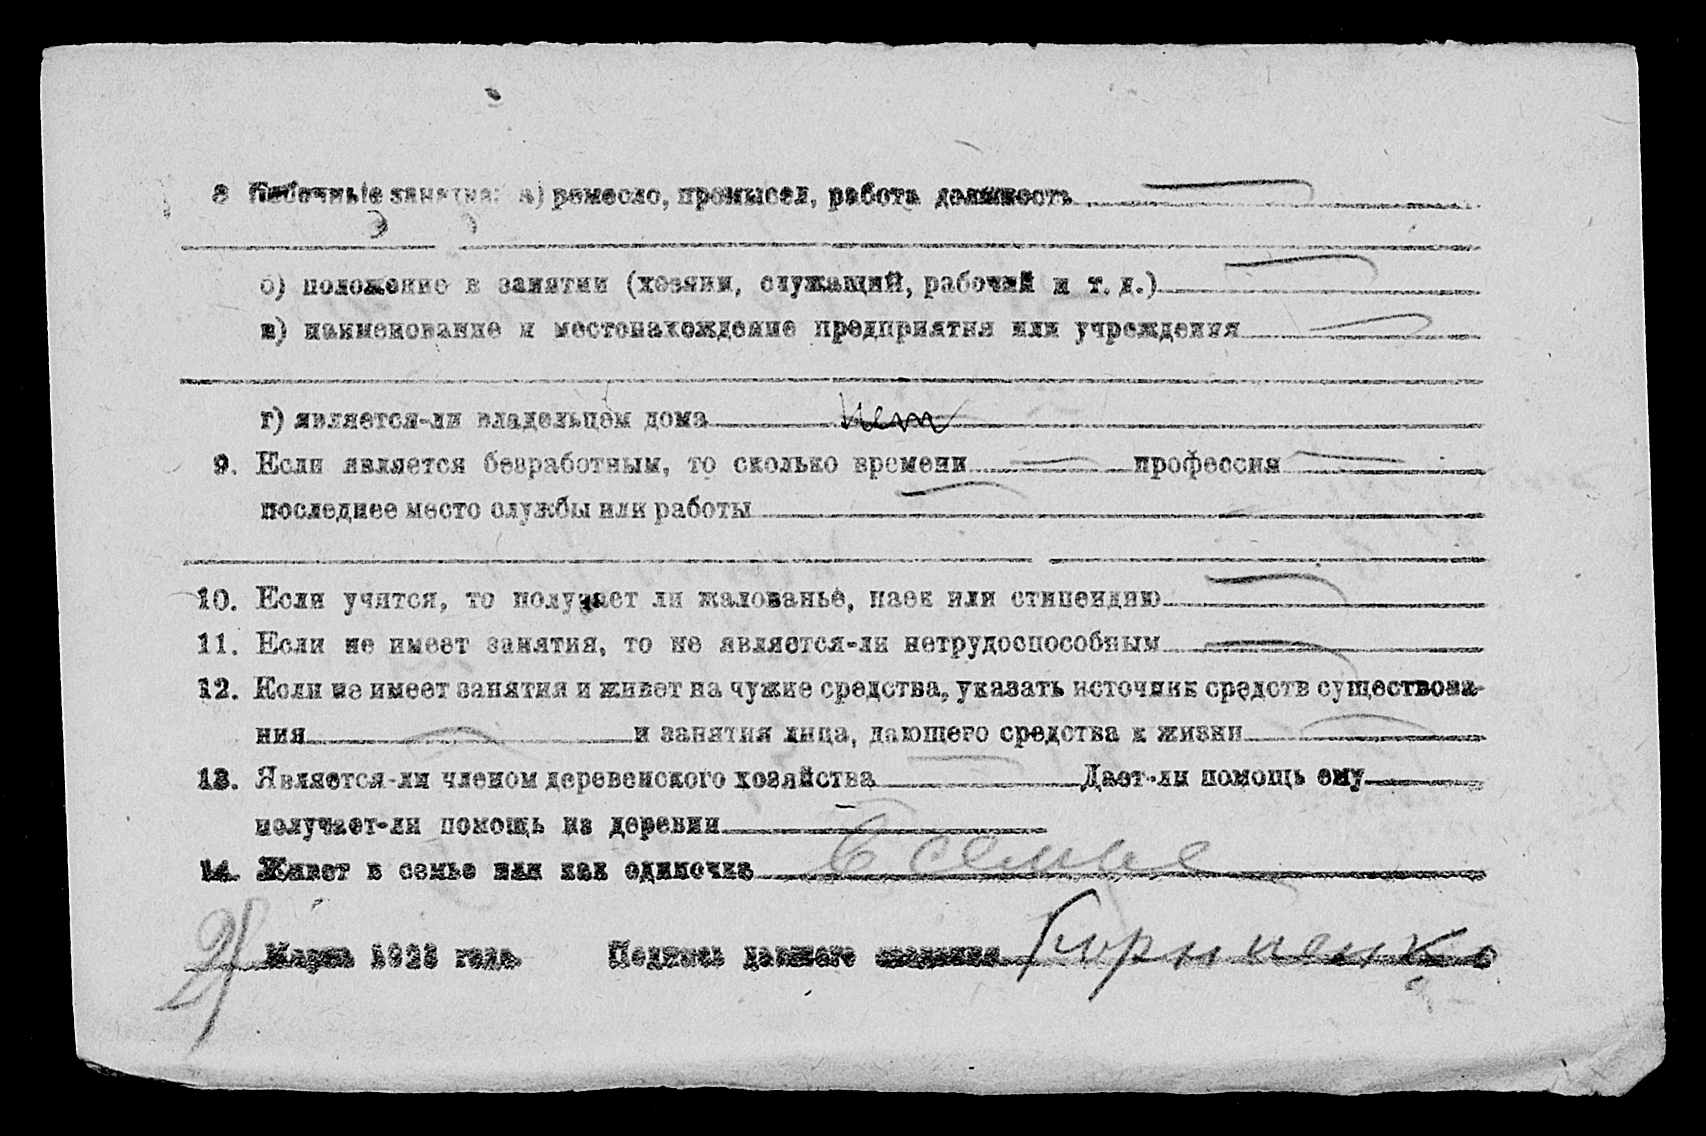 8 Побочные занятия: а) ремесло, промысел, работа должность
б) положение в занятии (хозяин, служащий, рабочий и т. д.)
в) наименование и местонахождение предприятия или учреждения
г) является-ли владельцем дома нет
9. Если является безработным, то сколько времени — профессия —
последнее место службы или работы —
10. Если учится, то получает ли жалованье, паек или стипендию —
11. Если не имеет занятия, то не является-ли нетрудоспособным —
12. Если не имеет занятия и живет на чужие средства, указать источник средств существова-
ния — и занятия лица, дающего средства к жизни —
13. Является-ли членом деревенского хозяйства — Дает-ли помощь ему
получает-ли помощь из деревни —
14. Живет в семье или как одиночка В семье
Марта 1923 года. Подпись давшего сведения